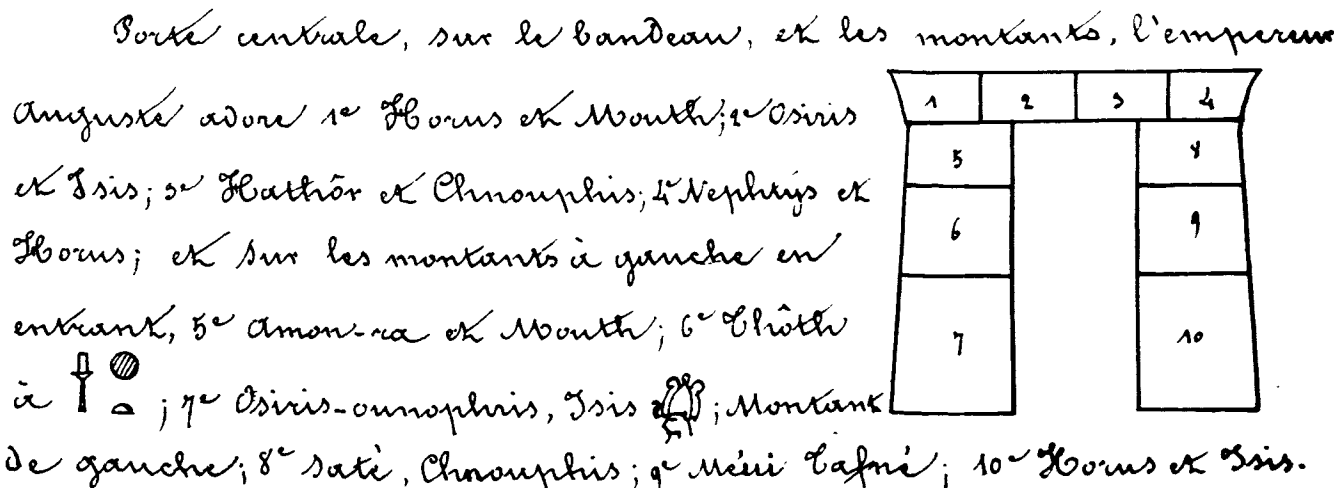 Porte centrale, sur le bandeau, et les montants, l'empereur
Auguste adore 1º Horus et Mouth; 2º Osiris
et Isis; 3º Hathôr et Chnouphis; 4º Nephtys et
Horus; et sur les montants à gauche en
entrant, 5º Amon-ra et Mouth; 6º Thôth
à ; 7º Osiris-ounophris, Isis ; Montant
de gauche; 8º Saté, Chnouphis; 9º Méui Tafné; 10º Horus et Isis.
1 2 3 4
5 8
6 9
7 10